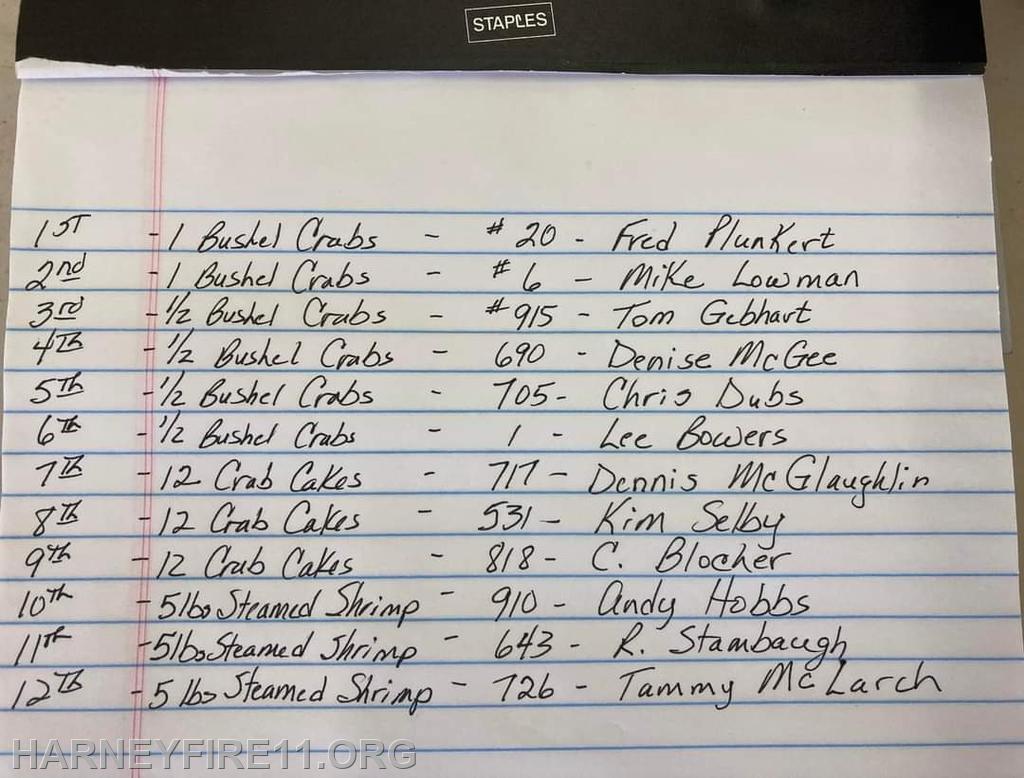 STAPLES
1ST - 1 Bushel Crabs - # 20 - Fred Plunkert
2nd - 1 Bushel Crabs - # 6 - Mike Lowman
3rd - 1/2 Bushel Crabs - # 915 - Tom Gebhart
4TH - 1/2 Bushel Crabs - 690 - Denise McGee
5TH - 1/2 Bushel Crabs - 705 - Chris Dubs
6TH - 1/2 Bushel Crabs - 1 - Lee Bowers
7TH - 12 Crab Cakes - 717 - Dennis McGlaughlin
8TH - 12 Crab Cakes - 531 - Kim Selby
9TH - 12 Crab Cakes - 818 - C. Blocher
10TH - 5 lbs Steamed Shrimp - 910 - Andy Hobbs
11TH - 5 lbs Steamed Shrimp - 643 - R. Stambaugh
12TH - 5 lbs Steamed Shrimp - 726 - Tammy McLarch
HARNEYFIRE11.ORG